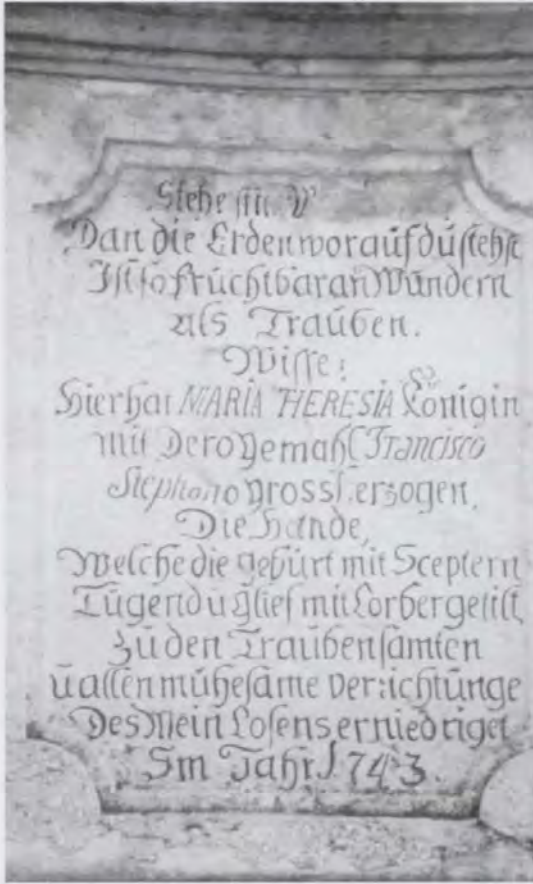 Stehe still
Dan die Erden worauf dŭ stehst
Ist so frŭchtbar an Wŭndern
als Traŭben.
Wisse:
Hier hat MARIA THERESIA Königin
mit Dero gemahl Francisco
Stephano grossherzogen,
Die Hände,
Welche die gebŭrt mit Sceptern
Tŭgend ŭ glick mit Lorber
Zŭ den Traŭben
ŭ allen mŭhesame verrichtŭnge
Des Wein Lesens erniedriget
Im Jahr 1743.